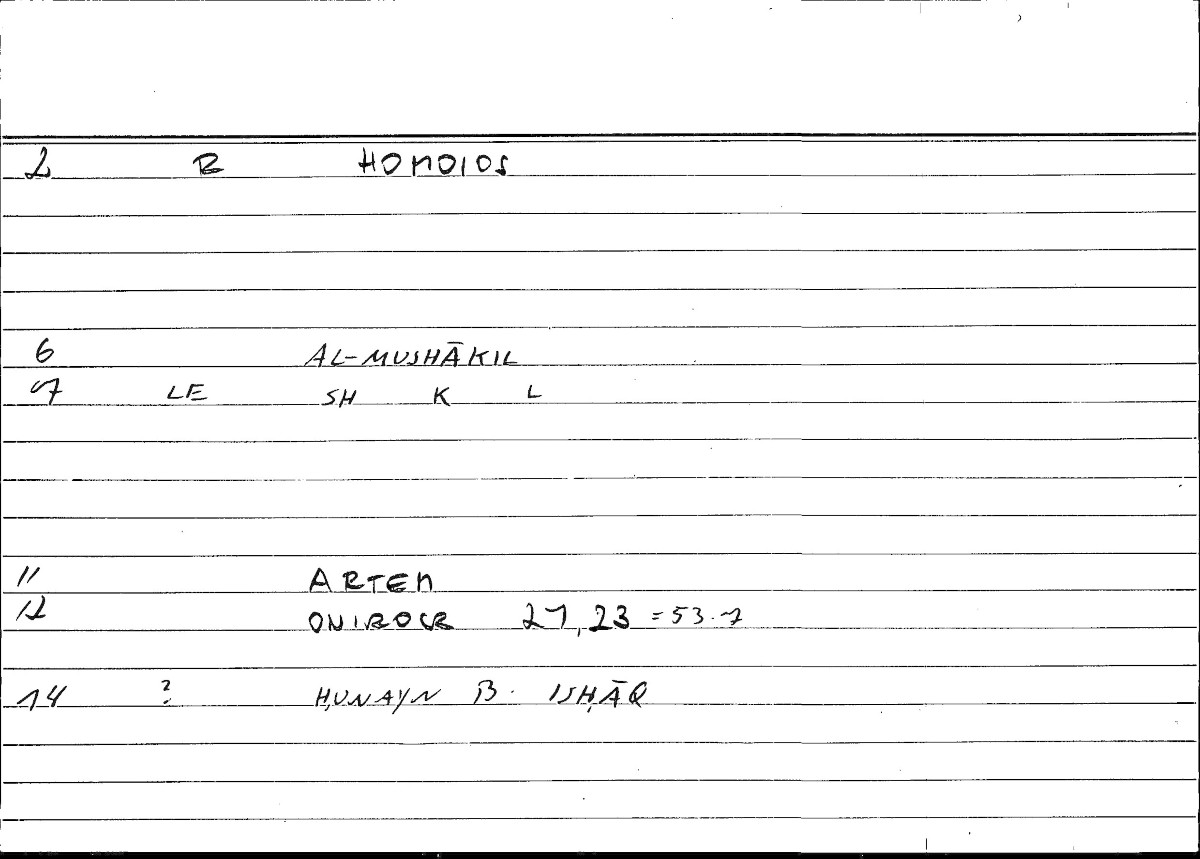 2 B HOMOIOS
6 AL-MUSHĀKIL
7 LE SH K L
11 ARTEM
12 ONIROCR 21,23 = 53.7
14 ? ḤUNAYN B. ISḤĀQ